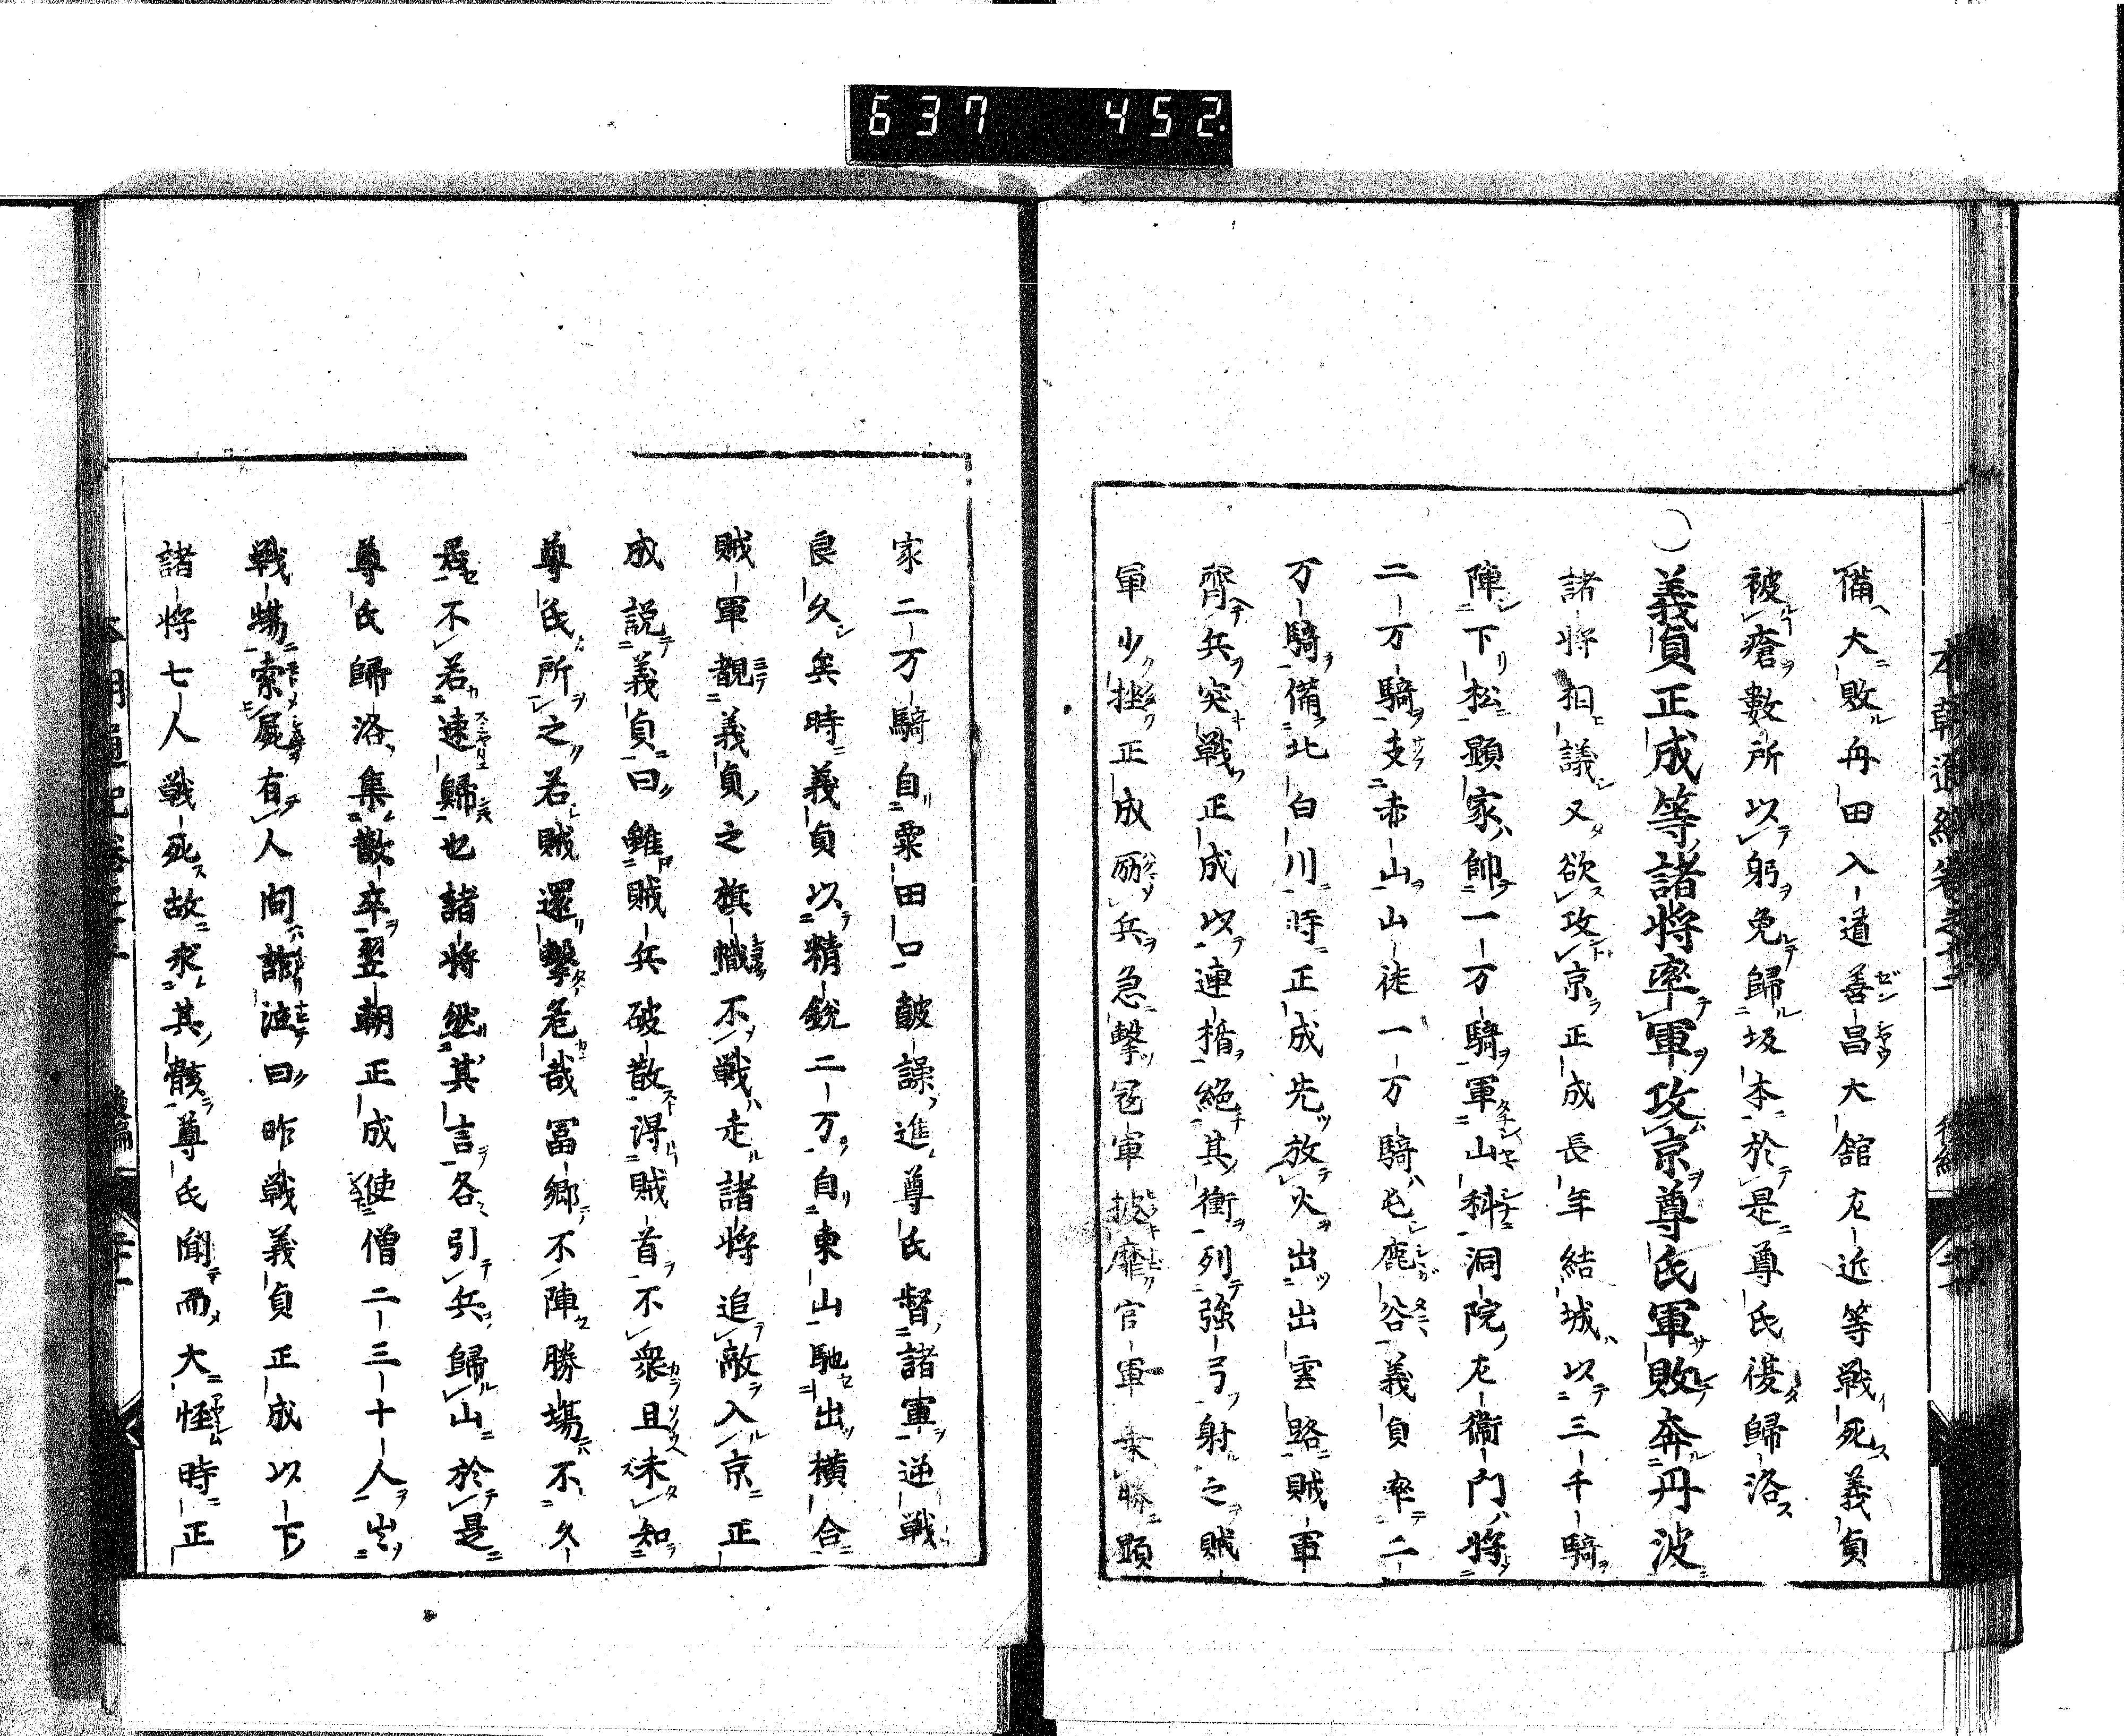 637 452.
備大敗舟田入道善昌大舘左近等戦死義貞
被瘡數所以躬免歸坂本於是尊氏復歸洛
義貞正成等諸将率軍攻京尊氏軍敗奔丹波
諸将相議又欲攻京正成長年結城以三千騎
陣下松顕家帥一万騎軍山科洞院左衞門将
二万騎支赤山山徒一万騎屯鹿谷義貞率二
万騎備北白川時正成先放火出出雲路賊軍
齊兵突戦正成以連楯絕其衝列強弓射之賊
軍少挫正成励兵急擊冦軍披靡官軍乗勝顕
家二万騎自粟田口皷譟進尊氏督諸軍逆戦
良久矣時義貞以精銳二万自東山馳出横合
賊軍覩義貞之旗幟不戦走諸将追敵入京正
成説義貞曰雖賊兵破散得賊首不衆且未知
尊氏所之若賊還擊危哉冨郷不陣勝場不久
居不若速歸也諸将継其言各引兵歸山於是
尊氏歸洛集散卒翌朝正成使僧二三十人出
戦場索屍有人問詭泣曰昨戦義貞正成以下
諸将七人戦死故求其骸尊氏聞而大恠時正